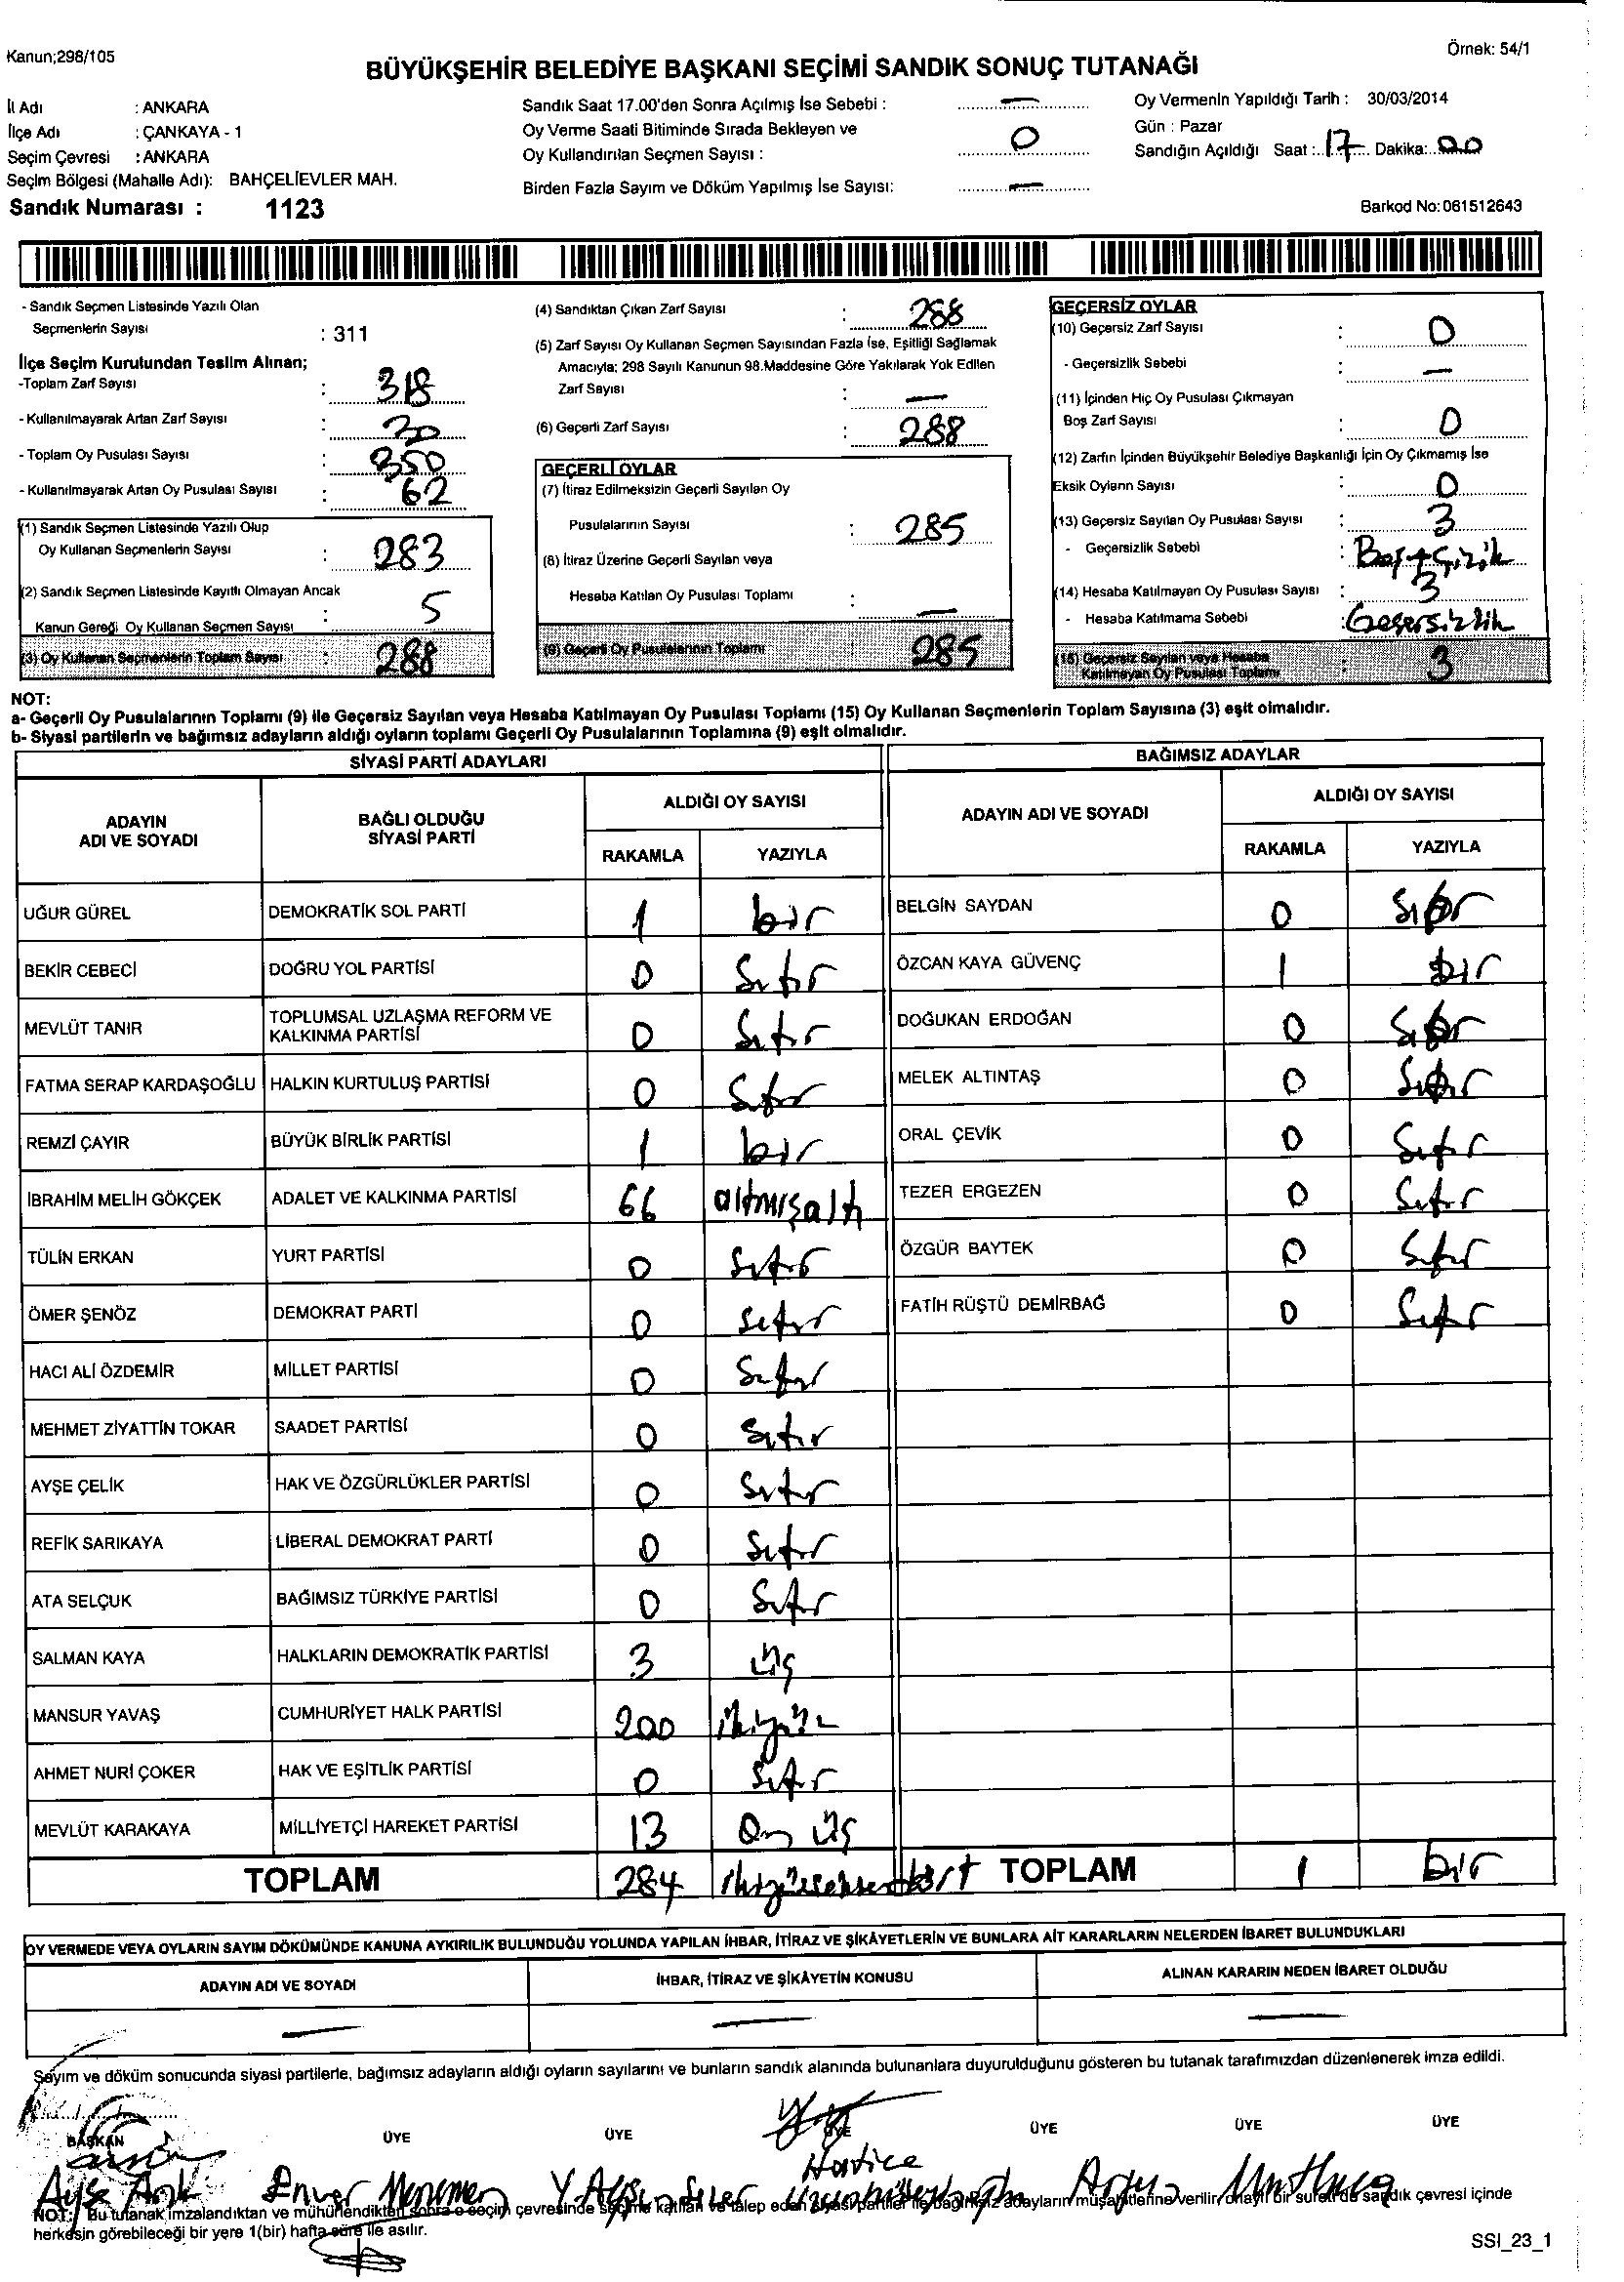 Kanun;298/105
Örnek: 54/1
BÜYÜKŞEHİR BELEDİYE BAŞKANI SEÇİMİ SANDIK SONUÇ TUTANAĞI
İl Adı : ANKARA
İlçe Adı : ÇANKAYA - 1
Seçim Çevresi : ANKARA
Seçim Bölgesi (Mahalle Adı): BAHÇELİEVLER MAH.
Sandık Numarası : 1123
Sandık Saat 17.00'den Sonra Açılmış İse Sebebi : —
Oy Verme Saati Bitiminde Sırada Bekleyen ve
Oy Kullandırılan Seçmen Sayısı : 0
Birden Fazla Sayım ve Döküm Yapılmış İse Sayısı: —
Oy Vermenin Yapıldığı Tarih : 30/03/2014
Gün : Pazar
Sandığın Açıldığı Saat : 17 Dakika: 00
Barkod No: 061512643
- Sandık Seçmen Listesinde Yazılı Olan
Seçmenlerin Sayısı : 311
İlçe Seçim Kurulundan Teslim Alınan;
-Toplam Zarf Sayısı : 318
- Kullanılmayarak Artan Zarf Sayısı : 30
- Toplam Oy Pusulası Sayısı : 350
- Kullanılmayarak Artan Oy Pusulası Sayısı : 62
(1) Sandık Seçmen Listesinde Yazılı Olup
Oy Kullanan Seçmenlerin Sayısı : 283
(2) Sandık Seçmen Listesinde Kayıtlı Olmayan Ancak
Kanun Gereği Oy Kullanan Seçmen Sayısı : 5
(3) Oy Kullanan Seçmenlerin Toplam Sayısı : 288
(4) Sandıktan Çıkan Zarf Sayısı : 288
(5) Zarf Sayısı Oy Kullanan Seçmen Sayısından Fazla İse, Eşitliği Sağlamak
Amacıyla; 298 Sayılı Kanunun 98.Maddesine Göre Yakılarak Yok Edilen
Zarf Sayısı : —
(6) Geçerli Zarf Sayısı : 288
GEÇERLİ OYLAR
(7) İtiraz Edilmeksizin Geçerli Sayılan Oy
Pusulalarının Sayısı : 285
(8) İtiraz Üzerine Geçerli Sayılan veya
Hesaba Katılan Oy Pusulası Toplamı : —
(9) Geçerli Oy Pusulalarının Toplamı 285
GEÇERSİZ OYLAR
(10) Geçersiz Zarf Sayısı : 0
- Geçersizlik Sebebi : —
(11) İçinden Hiç Oy Pusulası Çıkmayan
Boş Zarf Sayısı : 0
(12) Zarfın İçinden Büyükşehir Belediye Başkanlığı İçin Oy Çıkmamış İse
Eksik Oyların Sayısı : 0
(13) Geçersiz Sayılan Oy Pusulası Sayısı : 3
- Geçersizlik Sebebi : Boş+Çizik
(14) Hesaba Katılmayan Oy Pusulası Sayısı : 3
- Hesaba Katılmama Sebebi : Geçersizlik
(15) Geçersiz Sayılan veya Hesaba
Katılmayan Oy Pusulası Toplamı : 3
NOT:
a- Geçerli Oy Pusulalarının Toplamı (9) ile Geçersiz Sayılan veya Hesaba Katılmayan Oy Pusulası Toplamı (15) Oy Kullanan Seçmenlerin Toplam Sayısına (3) eşit olmalıdır.
b- Siyasi partilerin ve bağımsız adayların aldığı oyların toplamı Geçerli Oy Pusulalarının Toplamına (9) eşit olmalıdır.
SİYASİ PARTİ ADAYLARI
ADAYIN ADI VE SOYADI BAĞLI OLDUĞU SİYASİ PARTİ ALDIĞI OY SAYISI
RAKAMLA YAZIYLA
UĞUR GÜREL DEMOKRATİK SOL PARTİ 1 bir
BEKİR CEBECİ DOĞRU YOL PARTİSİ 0 Sıfır
MEVLÜT TANIR TOPLUMSAL UZLAŞMA REFORM VE KALKINMA PARTİSİ 0 Sıfır
FATMA SERAP KARDAŞOĞLU HALKIN KURTULUŞ PARTİSİ 0 Sıfır
REMZİ ÇAYIR BÜYÜK BİRLİK PARTİSİ 1 bir
İBRAHİM MELİH GÖKÇEK ADALET VE KALKINMA PARTİSİ 66 altmışaltı
TÜLİN ERKAN YURT PARTİSİ 0 Sıfır
ÖMER ŞENÖZ DEMOKRAT PARTİ 0 Sıfır
HACI ALİ ÖZDEMİR MİLLET PARTİSİ 0 Sıfır
MEHMET ZİYATTİN TOKAR SAADET PARTİSİ 0 Sıfır
AYŞE ÇELİK HAK VE ÖZGÜRLÜKLER PARTİSİ 0 Sıfır
REFİK SARIKAYA LİBERAL DEMOKRAT PARTİ 0 Sıfır
ATA SELÇUK BAĞIMSIZ TÜRKİYE PARTİSİ 0 Sıfır
SALMAN KAYA HALKLARIN DEMOKRATİK PARTİSİ 3 üç
MANSUR YAVAŞ CUMHURİYET HALK PARTİSİ 200 ikiyüz
AHMET NURİ ÇOKER HAK VE EŞİTLİK PARTİSİ 0 Sıfır
MEVLÜT KARAKAYA MİLLİYETÇİ HAREKET PARTİSİ 13 On üç
TOPLAM 284 ikiyüzseksendört
BAĞIMSIZ ADAYLAR
ADAYIN ADI VE SOYADI ALDIĞI OY SAYISI
RAKAMLA YAZIYLA
BELGİN SAYDAN 0 Sıfır
ÖZCAN KAYA GÜVENÇ 1 bir
DOĞUKAN ERDOĞAN 0 Sıfır
MELEK ALTINTAŞ 0 Sıfır
ORAL ÇEVİK 0 Sıfır
TEZER ERGEZEN 0 Sıfır
ÖZGÜR BAYTEK 0 Sıfır
FATİH RÜŞTÜ DEMİRBAĞ 0 Sıfır
TOPLAM 1 bir
OY VERMEDE VEYA OYLARIN SAYIM DÖKÜMÜNDE KANUNA AYKIRILIK BULUNDUĞU YOLUNDA YAPILAN İHBAR, İTİRAZ VE ŞİKÂYETLERİN VE BUNLARA AİT KARARLARIN NELERDEN İBARET BULUNDUKLARI
ADAYIN ADI VE SOYADI İHBAR, İTİRAZ VE ŞİKÂYETİN KONUSU ALINAN KARARIN NEDEN İBARET OLDUĞU
— — —
Sayım ve döküm sonucunda siyasi partilerle, bağımsız adayların aldığı oyların sayılarını ve bunların sandık alanında bulunanlara duyurulduğunu gösteren bu tutanak tarafımızdan düzenlenerek imza edildi.
BAŞKAN ÜYE ÜYE ÜYE ÜYE ÜYE ÜYE
Ayşe Enver Menemen Hatice
NOT: Bu tutanak imzalandıktan ve mühürlendikten sonra o seçim çevresinde seçime katılan ve talep eden siyasi partiler ile bağımsız adayların müşahitlerine verilir, onaylı bir sureti de sandık çevresi içinde
herkesin görebileceği bir yere 1(bir) hafta süre ile asılır.
SSI_23_1